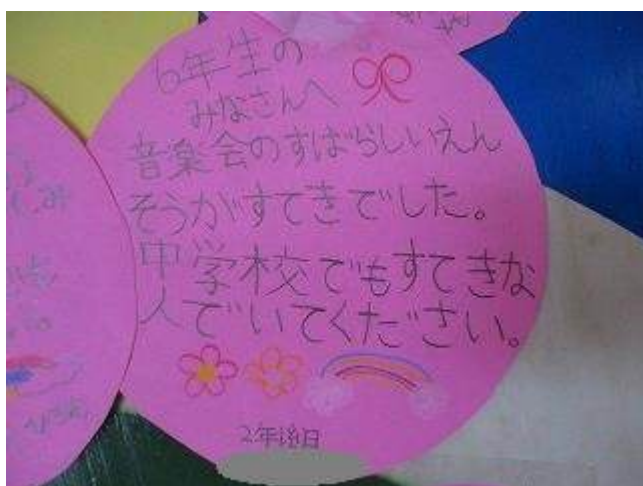 6年生の
みなさんへ
音楽会のすばらしいえん
そうがすてきでした。
中学校でもすてきな
人でいてください。
2年